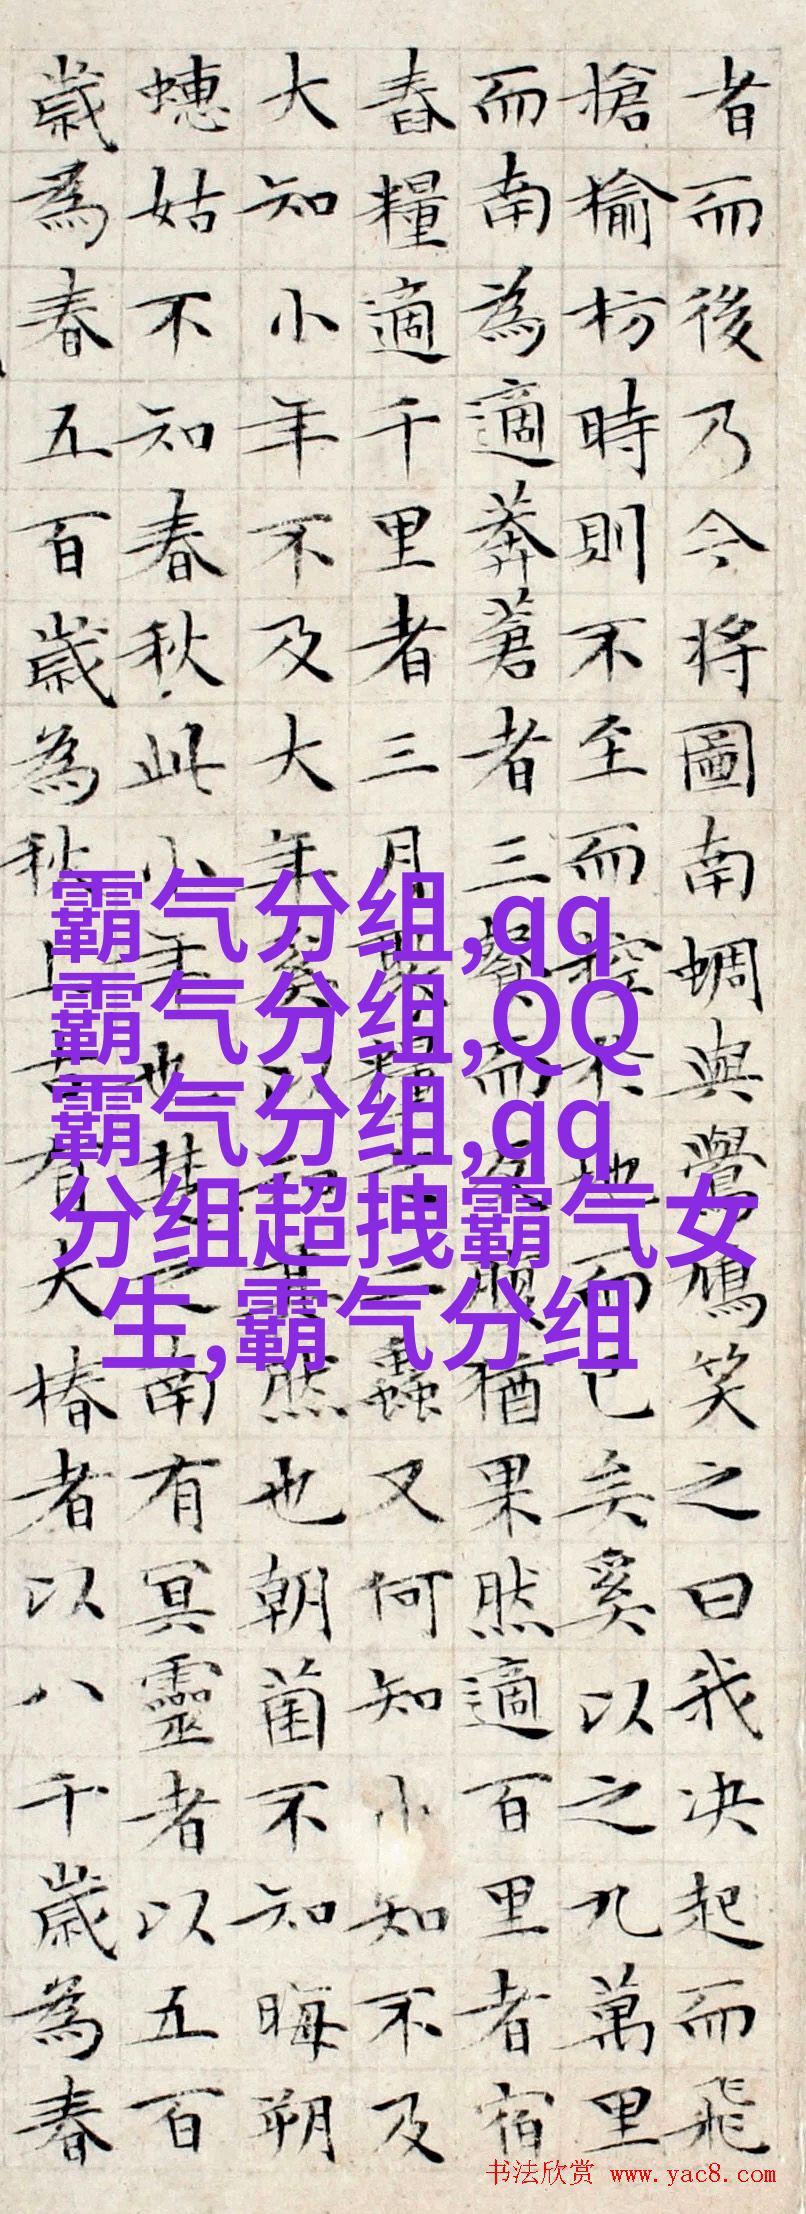 者而後乃今将圖南蜩與鷽鳩笑之曰我决起而飛
搶榆枋時則不至而控於地而已矣奚以之九萬里
而南為適莽蒼者三飡而腹猶果然適百里者宿
舂糧適千里者三月聚糧之二蟲又何知小知不及
大知小年不及大年奚以知其然也朝菌不知晦朔
蟪姑不知春秋此小年也楚之南有冥靈者以五百
歲為春五百歲為秋上古有大椿者以八千歲為春
霸气分组,qq
霸气分组,QQ
霸气分组,qq
分组超拽霸气女
生,霸气分组
书法欣赏 www.yac8.com